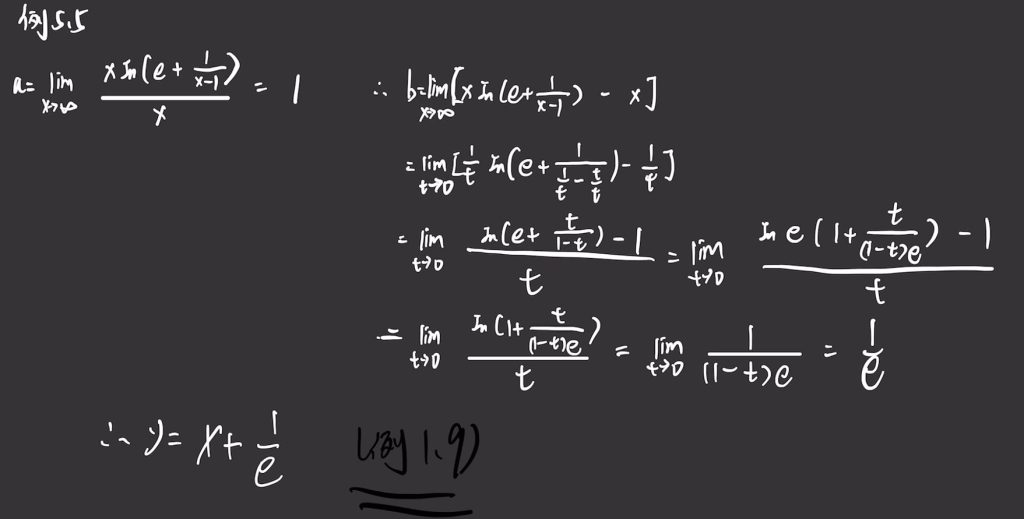 例5.5
a = lim_{x→∞} \frac{x ln(e + \frac{1}{x-1})}{x} = 1
∴ b = lim_{x→∞} [x ln(e + \frac{1}{x-1}) - x]
= lim_{t→0} [\frac{1}{t} ln(e + \frac{1}{\frac{1}{t} - \frac{t}{t}}) - \frac{1}{t}]
= lim_{t→0} \frac{ln(e + \frac{t}{1-t}) - 1}{t} = lim_{t→0} \frac{ln e(1 + \frac{t}{(1-t)e}) - 1}{t}
= lim_{t→0} \frac{ln(1 + \frac{t}{(1-t)e})}{t} = lim_{t→0} \frac{1}{(1-t)e} = \frac{1}{e}
∴ y = x + \frac{1}{e} (例1.9)